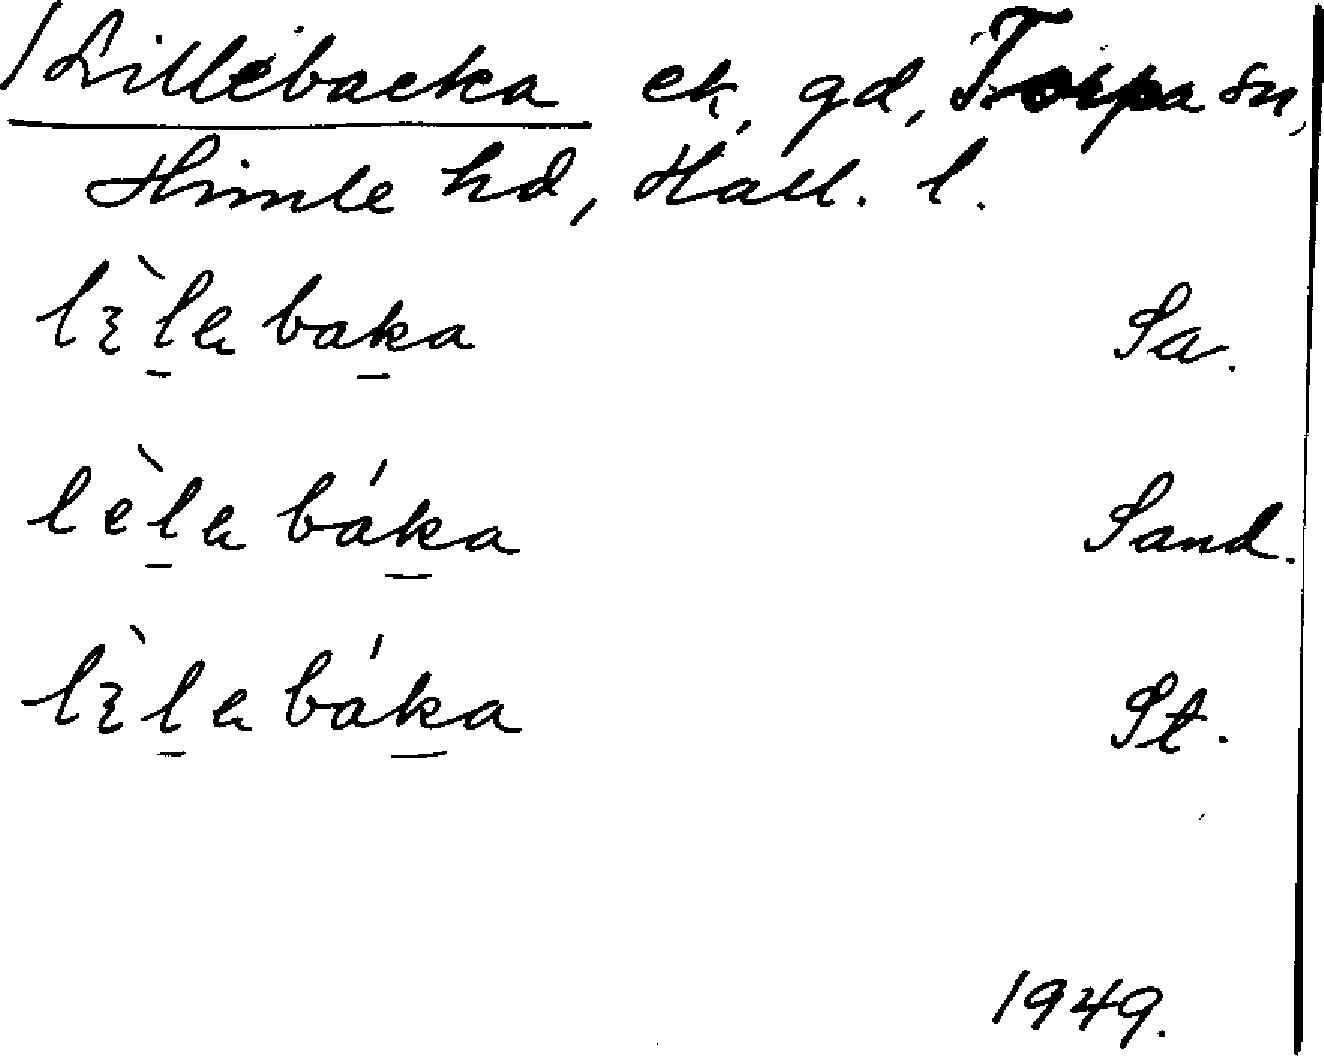 Lillebacka ek. gd, Torpa sn,
Himle hd, Hall. l.
lɛ̀lebaka Sa.
lèlebáka Sand.
lɛ̀lebáka St.
1949.